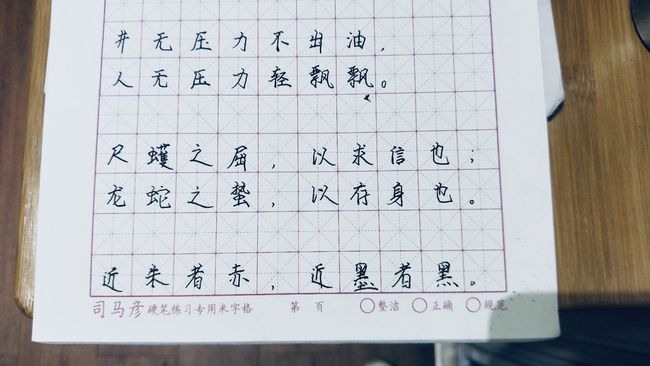 井无压力不出油，
人无压力轻飘飘。
尺蠖之屈，以求信也；
龙蛇之蛰，以存身也。
近朱者赤，近墨者黑。
司马彦硬笔练习专用米字格 第 页 ○整洁 ○正确 ○规范